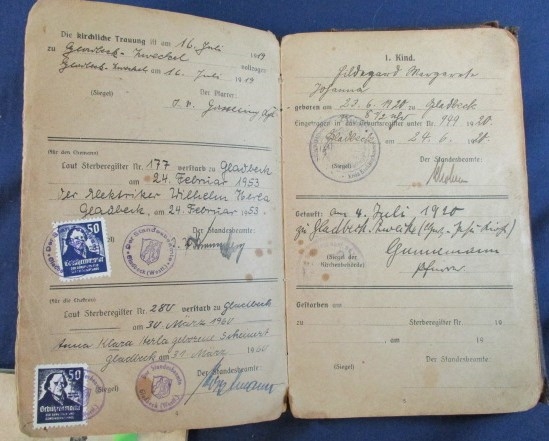 Die kirchliche Trauung ist am 16. Juli 1919
zu Gladbeck-Zweckel
vollzogen
Gladbeck-Zweckel am 16. Juli 1919
(Siegel)
Der Pfarrer:
(Für den Ehemann)
Laut Sterberegister Nr. 177 verstarb zu Gladbeck
am 24. Februar 1953
der Elektriker Wilhelm
Gladbeck, am 24. Februar 1953.
Der Standesbeamte:
50
Gladbeck (Westf.)
(Für die Ehefrau)
Laut Sterberegister Nr. 280 verstarb zu Gladbeck
am 30. März 1960
Anna Klara geborene
Gladbeck am 31. März 1960
(Siegel)
Der Standesbeamte
50
Der Standesbeamte
Gladbeck (Westf.)
1. Kind.
Hildegard Margarete
Johanna
geboren am 23. 6. 1920 zu Gladbeck
Eingetragen in das Geburtsregister unter Nr. 999 1920
Gladbeck am 24. 6. 1920
(Siegel)
Der Standesbeamte:
Getauft: am 4. Juli 1920
zu Gladbeck-Zweckel
(Siegel der
Kirchenbehörde)
Pfarrer
Gestorben am 19
zu Sterberegister Nr. 19
(Siegel)
Der Standesbeamte